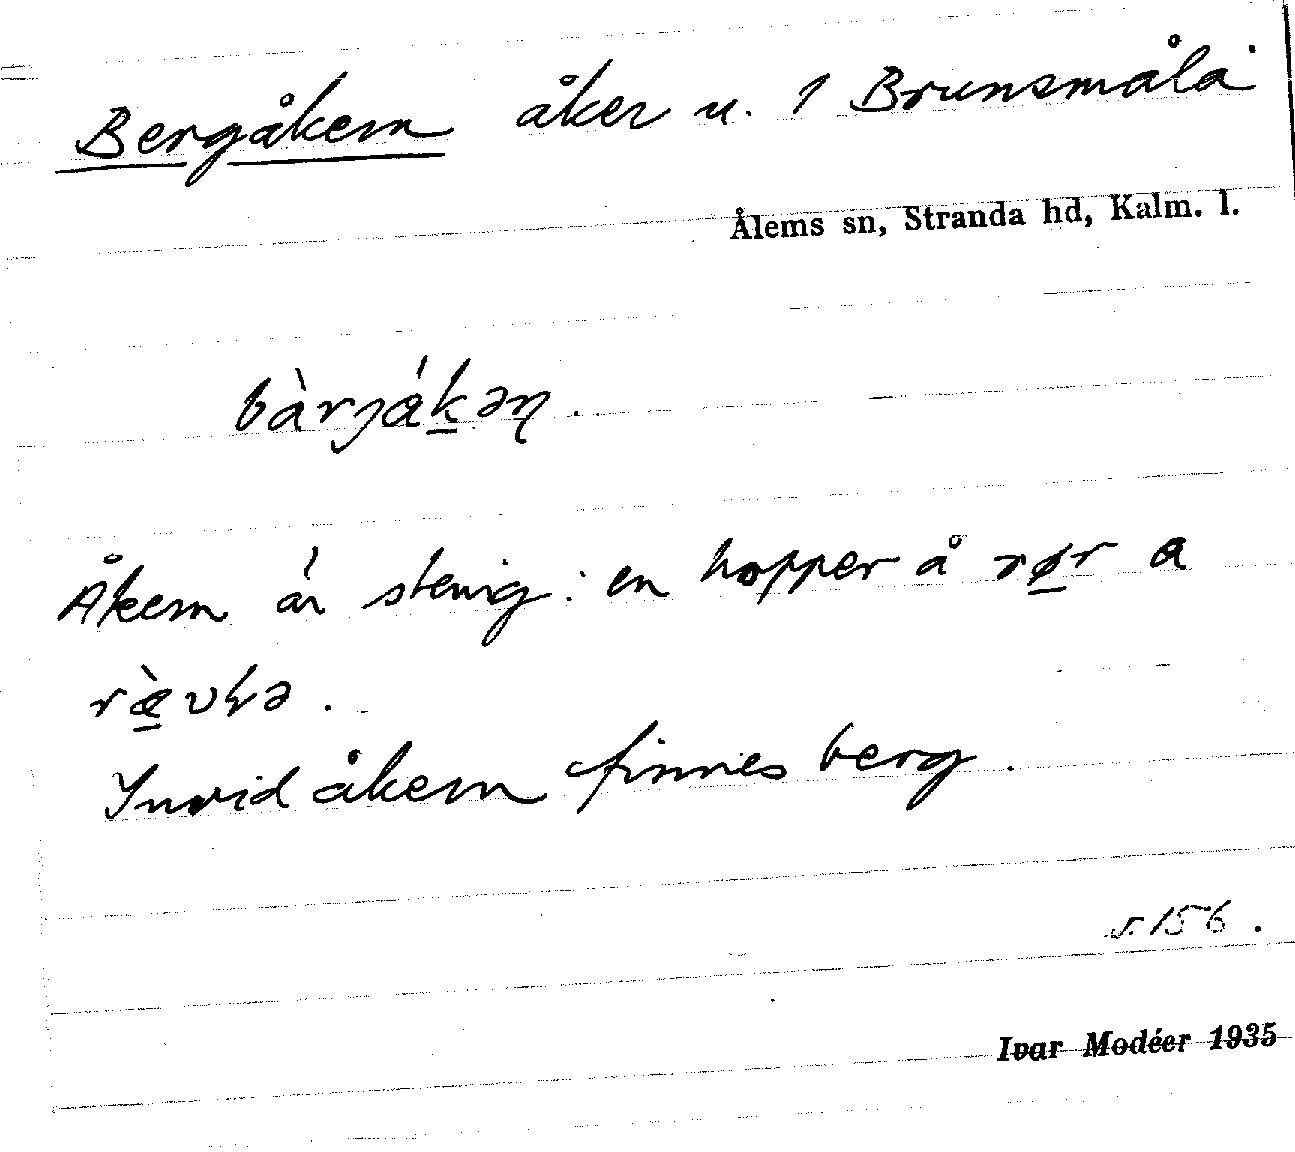 Bergåkern åker u. 1 Brunsmåla
Ålems sn, Stranda hd, Kalm. l.
bàrjákəɳ.
Åkern är stenig: en hopper å rør a
ræ̀vhə.
Invid åkern finnes berg.
s. 156.
Ivar Modéer 1935